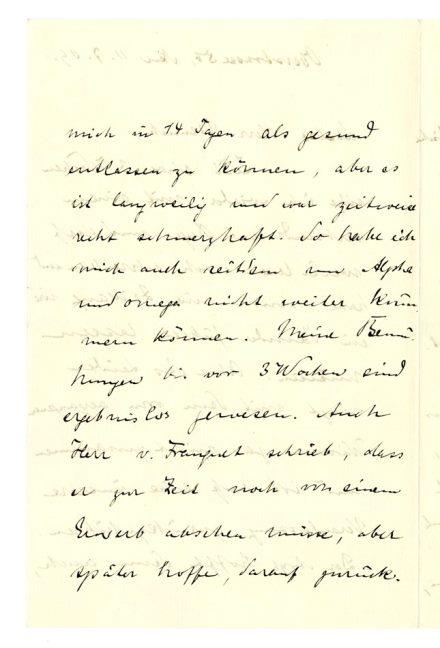 mich in 14 Tagen als gesund
entlassen zu können, aber es
ist langweilig und war zeitweise
recht schmerzhaft. So habe ich
mich auch seitdem um Alpha
und Omega nicht weiter küm-
mern können. Meine Bemü-
hungen bis vor 3 Wochen sind
ergebnislos gewesen. Auch
Herr v. Franquet schrieb, dass
er zur Zeit noch von einem
Erwerb absehen müsse, aber
später hoffe, darauf zurück-